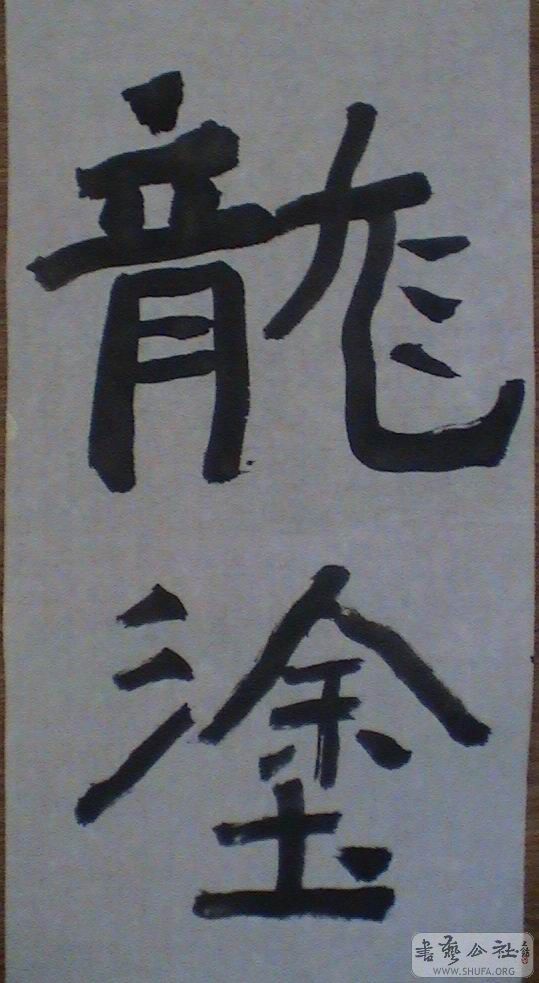 龍
塗
書藝公社
WWW.SHUFA.ORG